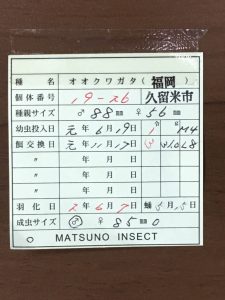 種 名 オオクワガタ(福岡
個体番号 19-26 久留米市
種親サイズ ♂ 88 ㎜ ♀ 56 ㎜
幼虫投入日 元年 6月19日
飼交換日 元年 11月17日
〃 年 月 日
〃 年 月 日
〃 年 月 日
羽化日 2年 6月7日 蛹 5月5日
成虫サイズ ♂ ♀ 85 ㎜ 0
MATSUNO INSECT